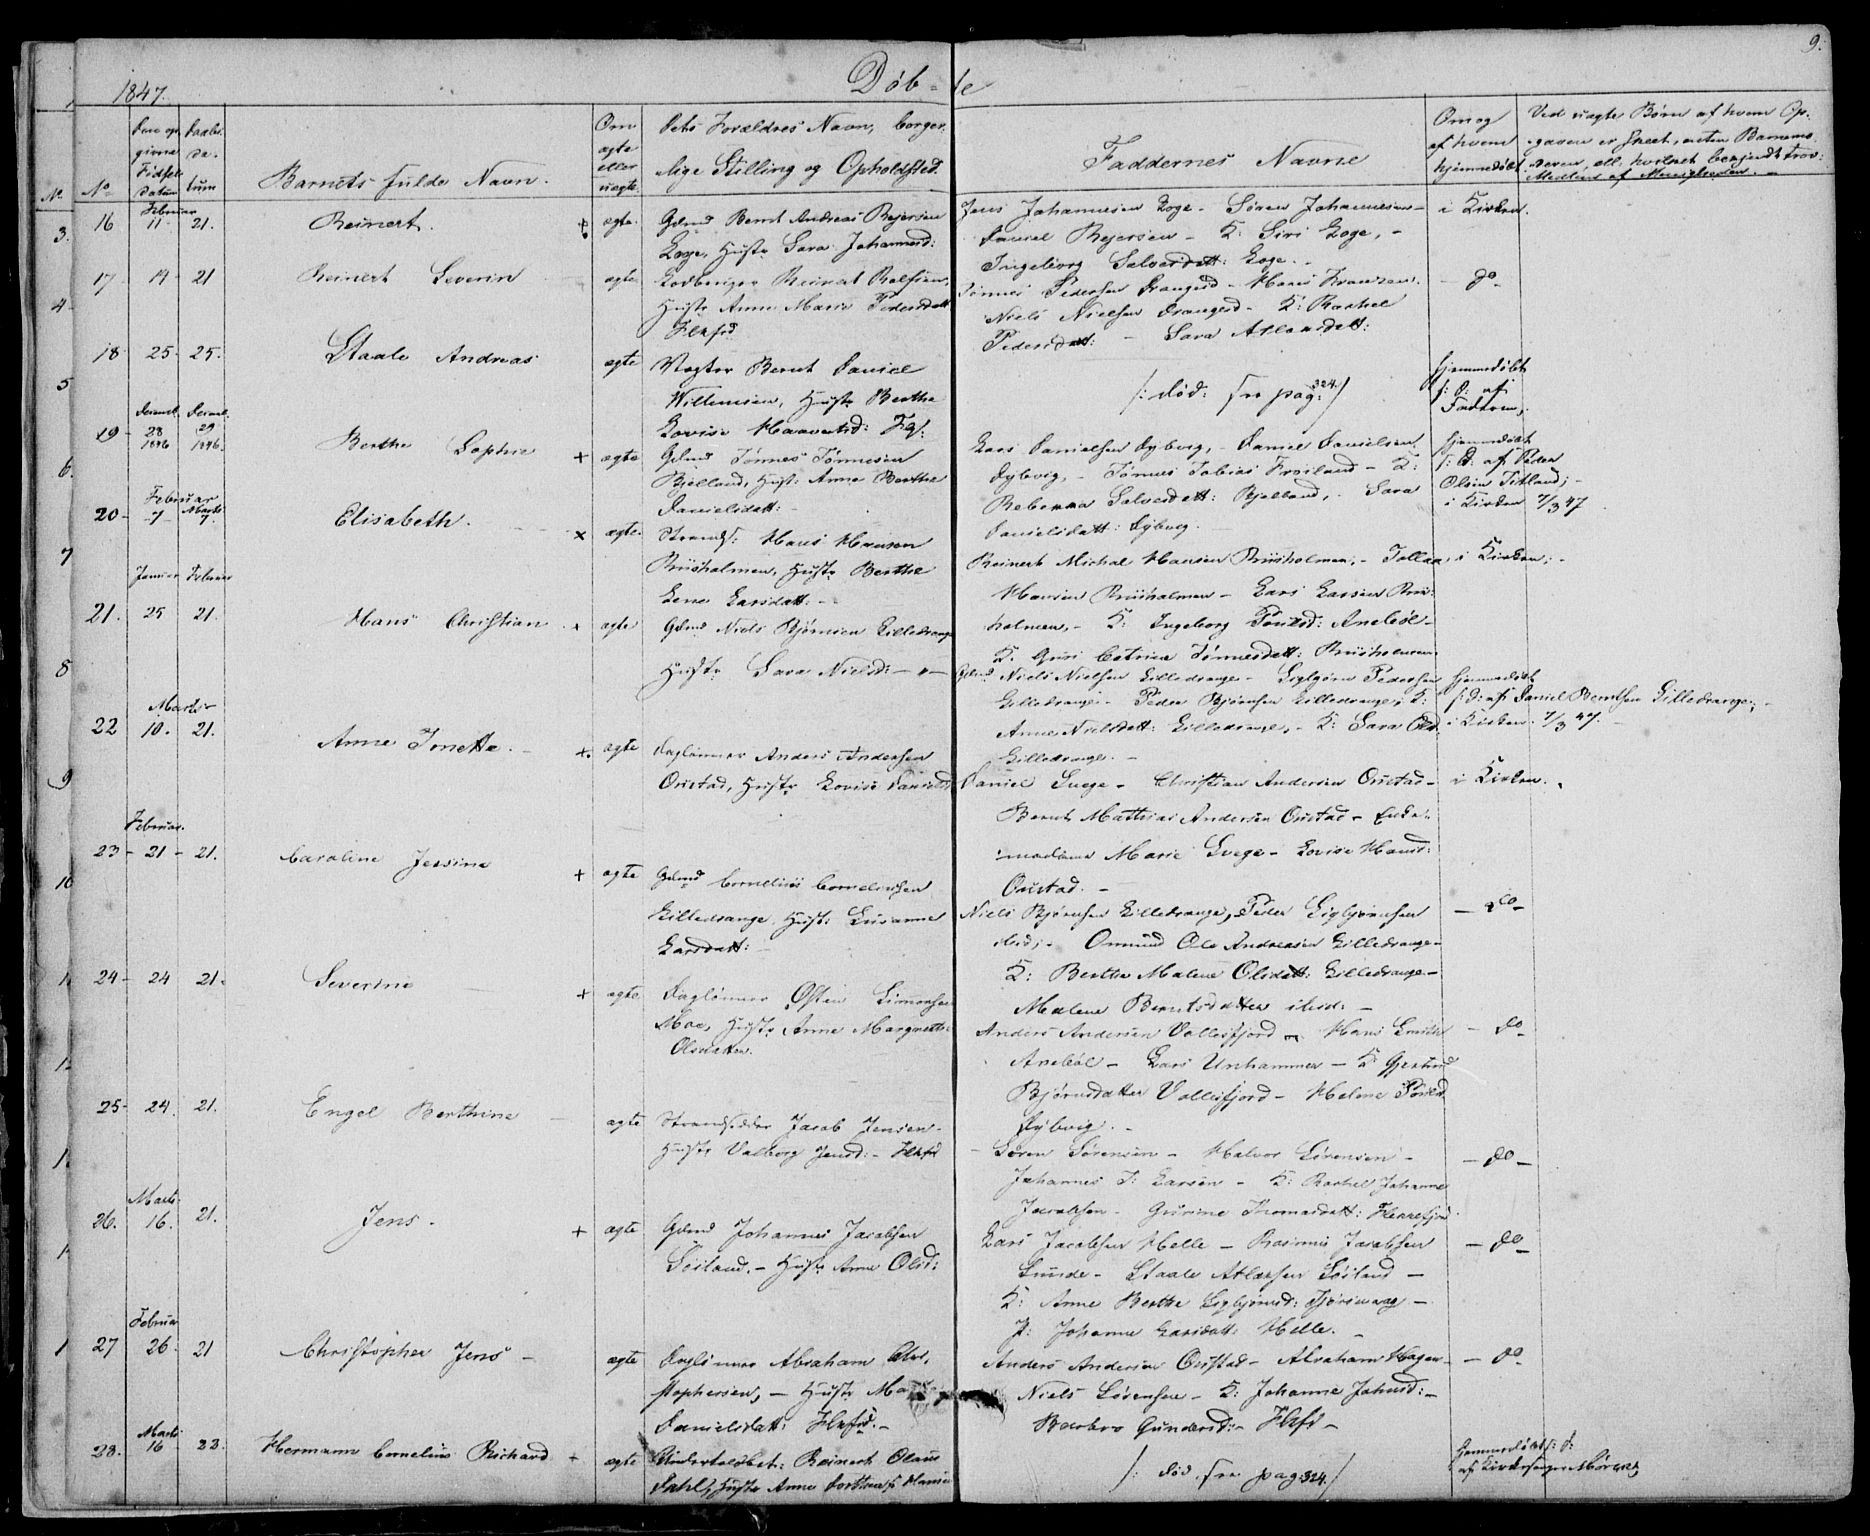 9.
1847.
Döb-te
No
Den op-
givne
Födsels
datum
Daabs-
da-
tum
Barnets fulde Navn.
Om
ægte
eller
uægte
Dets Forældres Navn, borger-
lige Stilling og Opholdsted.
Faddernes Navne
Om og
af hvem
hjemmedöbt
Ved uægte Börn af hvem Op-
gaven er skeet, enten Barnemo-
deren, ell: hvilket bekjendt trov:
Medlem af Menigheden. -
Februar
16 11. 21. Reinert. ægte Gdmd Bernt Andreas Rejersen
Loge, Hustr Sara Johannesd:
Jens Johannesen Loge - Sören Johannesen -
Daniel Rejersen - K: Siri Loge, -
Ingeborg Salvesdatt: Loge. -
i Kirken.
17 14 21 Reinert Severin ægte Reinert
Hustr Anne Marie Pedersdatt
Flkfd
Tönnes Pedersen Drangesd - Hans Franzen:
Niels Nielsen Drangesd - K: Rachel
Pedersdatt: - Sara Atlaksdatt:
- do -
18 25 25. Staale Andreas ægte Vægter Bernt Daniel
Willumsen, Hustr Berthe
Lovise Haavorsd: Fkf:
/: död: see pag: 324. /
hjemmedöbt
f: D: af
Faderen,
Decemb. Decemb.
19 28 29
1846 1846.
Berthe Sophie + ægte Gdmd Tönnes Tönnesen
Bjelland, Hust: Anne Berthe
Danielsdatt: -
Lars Danielsen Dybvig, - Daniel Danielsen
Dybvig, - Tönnes Tobias Fröiland - K:
Rebekka Salvesdatt: Bjelland, - Sara
Danielsdatt: Dybvig.
hjemmedöbt
f: D: af Peder
Olsen Titland; -
i Kirken 7/3 47.
Februar Marts
20 - 7 7. Elisabeth. x ægte. Strands: Hans Hansen
Riisholmen, Hustr Berthe
Lene Larsdatt: -
Reinert Michal Hansen Riisholmen, - Tollak
Hansen Riisholmen - Lars Larsen Riis-
holmen, - K: Ingeborg Aneböl -
K. Guri Catrine Tönnesdatt: Riisholmen.
i Kirken; -
Januar Februar
21. 25 21. Hans Christian + ægte Gdmd Niels Björnsen Gilledrange
Hustr Sara Nielsd: - " -
Gdmd Niels Nielsen Gilledrange - Sigbjörn Pedersen
Gilledrange - Peder Björnsen Gilledrange, K:
Anne Nielsdatt: Gilledrange, - K: Sara Olsd:
Gilledrange. -
hjemmedöbt
f: D: af Daniel Berntsen Gilledrange, -
i Kirken. 7/3 47. -
Marts
22 10. 21. Anne Jonette. - +. ægte Daglönner Anders Andersen
Oustad, Hustr Lovise Danielsd
Daniel Svege - Christian Andersen Oustad -
Bernt Mathias Andersen Oustad - Enke-
madame Marie Svege - Lovise Hansd:
Oustad. -
i Kirken.
Februar.
23 - 21 - 21. Caroline Jessine + ægte Gdmd Cornelius Corneliusen
Gilledrange, Hustr: Susanne
Larsdatt:
Niels Björnsen Gilledrange, Peder Sigbjörnsen
ibid; - Omund Ole Andreasen Gilledrange -
K: Berthe Malene Olsdatt: Gilledrange -
Malene Berntsdatter ibid: -
- do -
24 - 24 21. Severine + ægte Daglönner Østen Simonsen
Moe, Hustr Anne Margrethe
Olsdatter.
Anders Andersen Vollesfjord - Hans Smith
Aneböl - Lars Unhammer - K Gjertrud
Björnsdatter Vollesfjord - Helene
Dybvig. -
- do -
25 - 24. 21. Engel Berthine - ægte Strandsidder Jacob Jensen -
Hustr Valborg Jensd: - Flkfd
- Sören Sörensen - Halvor Sörensen -
Johannes T: Larsen - K: Rachel Johanne
Jacobsen - Gurine Thomasdatt: Flekkefjord.
- do -
Marts
26. 16. 21. Jens. + ægte Gdmd Johannes Jacobsen
Söiland. - Hustr Anne Olsd:
Lars Jacobsen Helle - Rasmus Jacobsen
Sunde - Staale Atlaksen Söiland -
K: Anne Berthe Sigbjörnsd:
P: Johanne Larsdatt: Helle. -
- do -
Februar
27 26. 21 Christopher Jens - ægte Daglönner Abraham Chri-
stophersen, - Hustr
Danielsdatt: Flkfd. -
Anders Andersen Oustad - Abraham Hagen -
Niels Sörensen - K: Johanne Johnsd: -
Barbro Gundersd: - Flkfd -
- do -
Marts
28. 16 22. Hermann Cornelius Richard + ægte Undertoldbet: Reinert Olaus
Dahl, Hustr Anne Dorthea f: Hansen
/: död. see pag 324. /
hjemmedöbt f: D:
af Kirkesanger Mörch